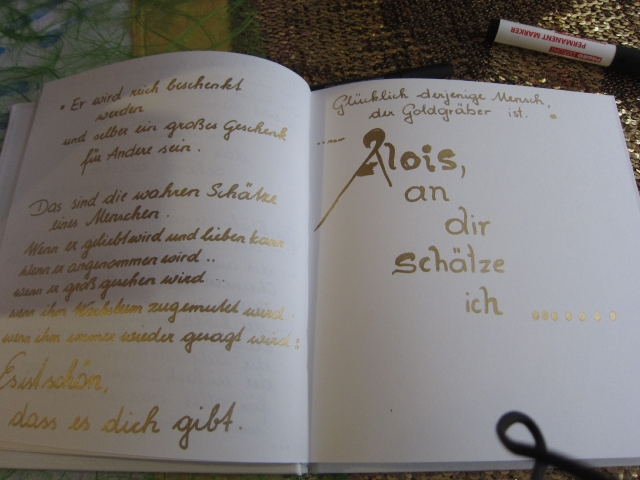 • Er wird reich beschenkt
werden
und selber ein großes Geschenk
für Andere sein.
Das sind die wahren Schätze
eines Menschen.
Wenn er geliebt wird und lieben kann
wenn er angenommen wird ..
wenn er groß gesehen wird ...
wenn ihm Wachstum zugemutet wird.
wenn ihm immer wieder gesagt wird:
Es ist schön,
dass es dich gibt.
Glücklich derjenige Mensch,
der Goldgräber ist.
Alois,
an
dir
schätze
ich .......
PERMANENT MARKER